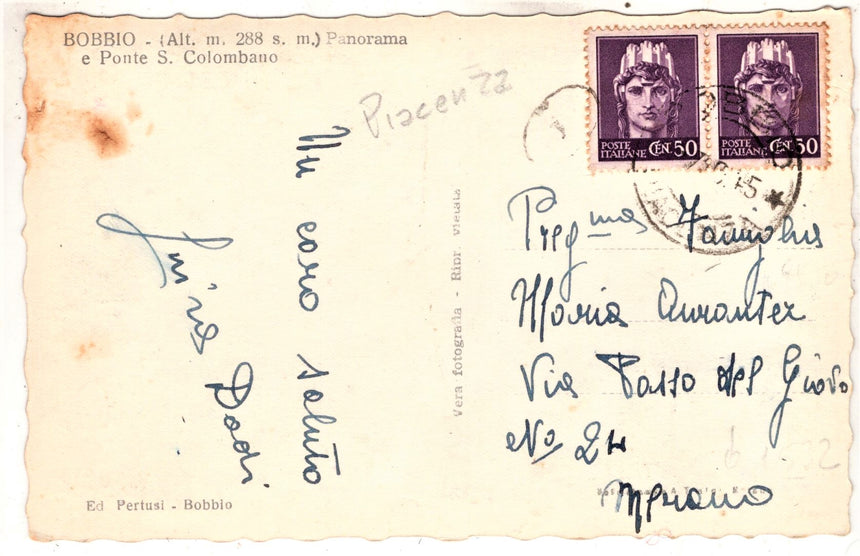 BOBBIO - (Alt. m. 288 s. m.) Panorama
e Ponte S. Colombano
Piacenza
POSTE ITALIANE CEN. 50
POSTE ITALIANE CEN. 50
Un caro saluto
Dodi
Vera fotografia - Ripr. vietata
Preg ma Famiglia
Maria Auranter
Via Passo del Giovo
No 24
Merano
Ed Pertusi - Bobbio